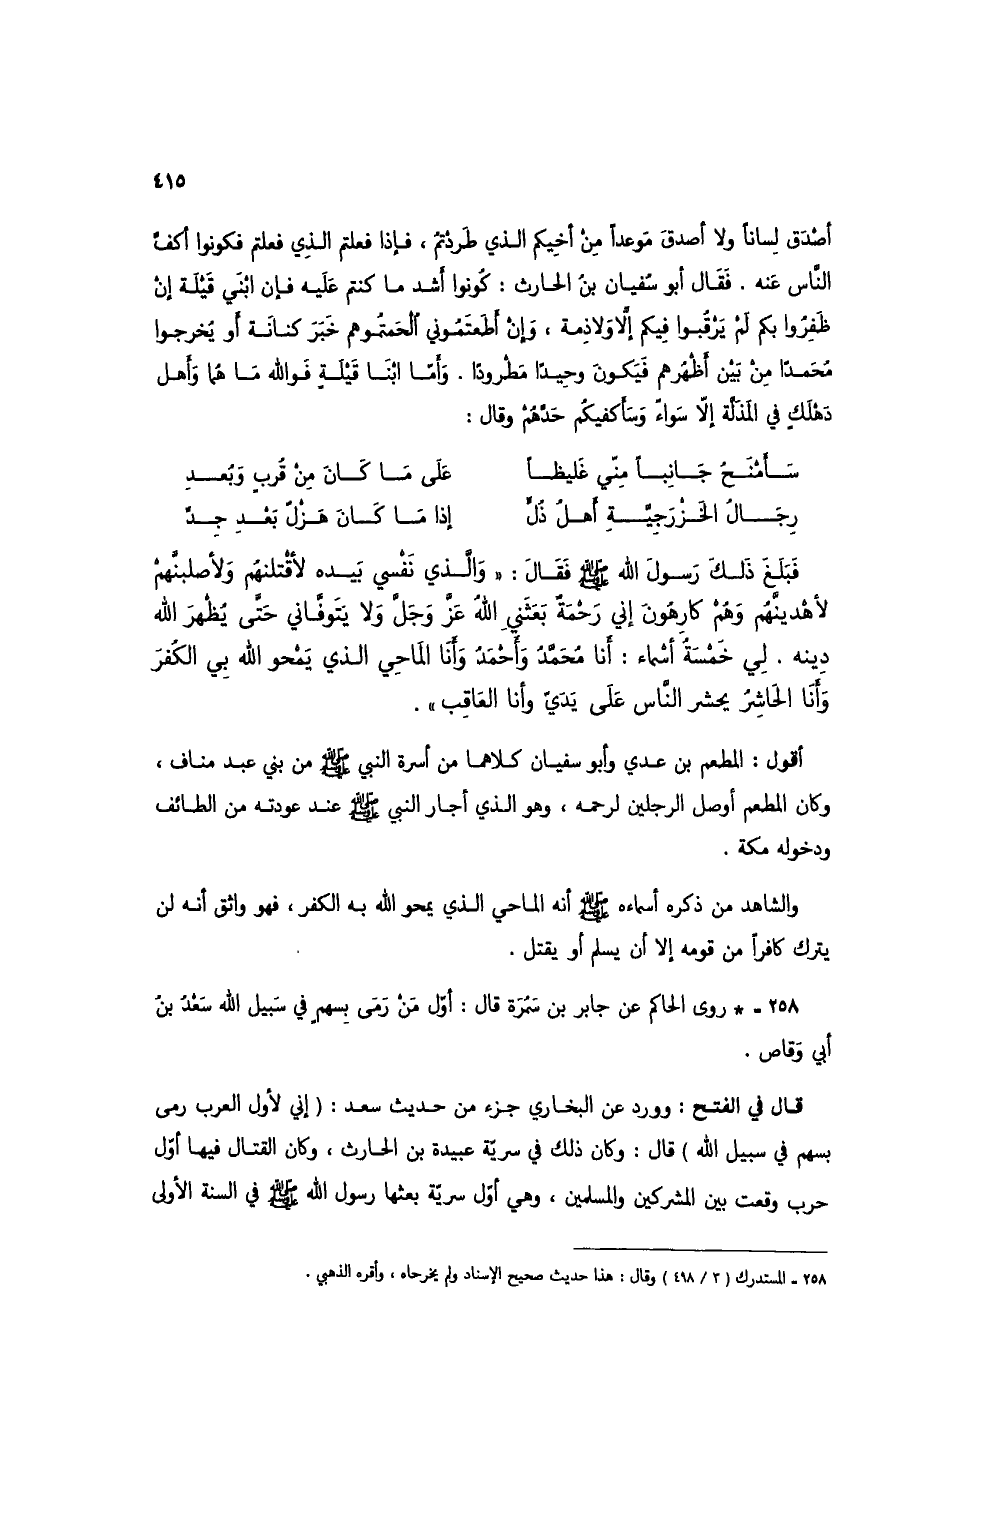 ٤١٥
أصْدَق لِساناً ولا أصدقَ مَوعداً مِنْ أخِيكم الـذي طَردْتمْ ، فـإذا فعلتم الـذِي فعلتم فكونوا أكفَّ
النَّاس عَنه . فَقَـال أبو سُفيان بنُ الحـارث : كُونوا أشـد مـا كنتم عَليـه فـإن ابْنَي قَيْلَـة إنْ
ظفِرُوا بكم لَمْ يَرْقُبـوا فِيكم إلَّا وَلاذِمـة ، وَإنْ أطَعتَمُـوني ألْحَمتُـوهم خَبَرَ كنـانَـة أو يُخرجـوا
مُحَمـدًا مِنْ بَيْنِ أظْهُرهم فَيَكـونَ وحِيـدًا مَطْرودًا . وَأمّـا ابْنَـا قَيْلَـةٍ فَـوالله مَـا هُما وَأهـل
دَهْلَكٍ في المَذَلَّة إلّا سَواءً وَسَأكفيكُم حَدَّهُمْ وقال :
سَـأمْنَـحُ جَـانِبـاً مِنّي غَليظـاً عَلَى مَـا كَـانَ مِنْ قُربٍ وَبُعـدِ
رِجَـالُ الخَـزْرَجِيَّـةِ أهـلُ ذُلٍّ إذا مَـا كَـانَ هَـزْلٌ بَعْـدِ جِـدِّ
فَبَلَغَ ذَلـكَ رَسـولَ الله ﷺ فَقَـالَ : « وَالَّـذي نَفْسي بَيـده لأقْتلنهُم وَلأصلبنَّهمْ
لأهْدينَّهُم وَهُمْ كارِهُونَ إني رَحْمَةٌ بَعَثَنِي اللهُ عَزَّ وَجَلَّ وَلا يَتَوفَّـاني حَتَّى يُظْهِرَ الله
دِينه . لِي خَمْسَةُ أسْماء : أنا مُحَمَّدٌ وَأحْمَدُ وَأنَا المَاحِي الـذي يَمْحو الله بِي الكُفرَ
وَأنَا الحَاشِرُ يحشر النَّاس عَلَى يَدَيّ وأنا العَاقِب » .
أقول : المطعم بن عـدي وأبو سفيـان كـلاهمـا من أسرة النبي ﷺ من بني عبـد منـاف ،
وكان المطعم أوصل الرجلين لرحمه ، وهو الـذي أجـار النبي ﷺ عنـد عودتـه من الطـائف
ودخوله مكة .
والشاهد من ذكره أسماءه ﷺ أنه المـاحي الـذي يمحو الله بـه الكفر ، فهو واثق أنـه لن
يترك كافراً من قومه إلا أن يسلم أو يقتل .
٢٥٨ ـ * روى الحاكم عن جابر بن سَمُرَة قال : أوّل مَنْ رَمَى بِسهمٍ في سَبيل الله سَعْدُ بنُ
أبي وَقاص .
قـال في الفتـح : وورد عن البخـاري جـزء من حـديث سعـد : ( إني لأول العرب رمى
بسهم في سبيل الله ) قال : وكان ذلك في سريّة عبيدة بن الحـارث ، وكان القتـال فيهـا أوّل
حرب وقعت بين المشركين والمسلمين ، وهي أوّل سريّة بعثها رسول الله ﷺ في السنة الأولى
٢٥٨ ـ المستدرك ( ٣ / ٤٩٨ ) وقال : هذا حديث صحيح الإسناد ولم يخرجاه ، وأقره الذهبي .